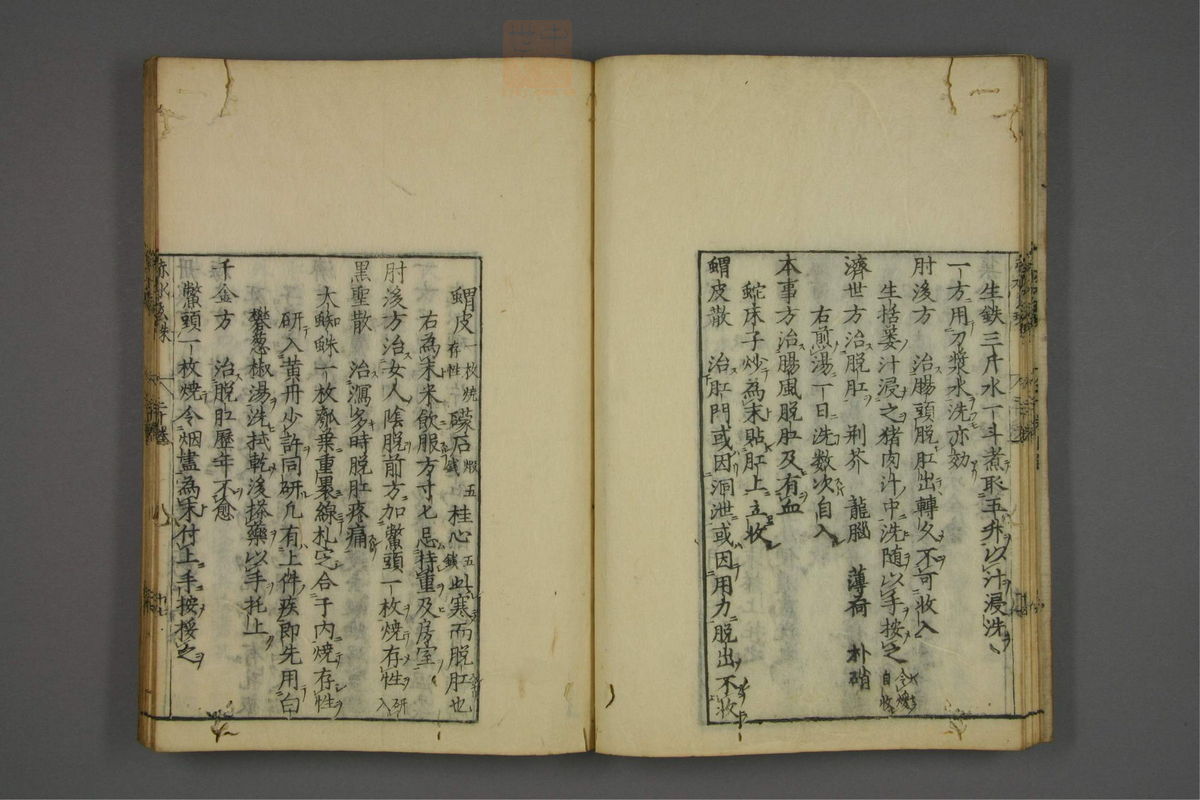 生鉄三斤水一斗煮取五升以汁浸洗
一方用刀漿水洗亦効
肘後方　治腸頭脱肛出轉久不可收入
生括蔞汁浸之猪肉汁中洗随以手按之令煖自收
濟世方治脱肛　荆芥　龍腦　薄荷　朴硝
右煎湯一日洗数次自入
本事方治腸風脱肛及有血
蛇床子炒為末貼肛上立收
蝟皮散　治肛門或因洞泄或因用力脱出不收
蝟皮一枚焼存性　礞石煅五錢　桂心五錢　此寒而脱肛也
右為末米飲服方寸匕忌持重及房室
肘後方治女人陰脱前方加鱉頭一枚焼存性研入
黒聖散　治瀉多時脱肛疼痛
大蜘蛛一枚瓠葉重裹線札定合子内焼存性
研入黄丹少許同研凡有上件疾即先用白
礬葱椒湯洗拭乾後搽藥以手托上
千金方　治脱肛歴年不愈
鱉頭一枚焼令烟盡為末付上手按挼之
赤水玄珠